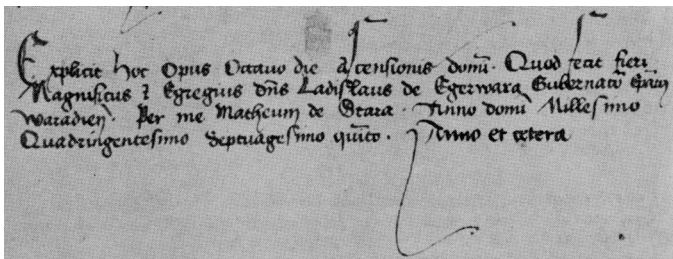 Explicit hoc opus Octavo die Ascensionis domi. Quod fecit fieri
Magnificus ⁊ Egregius dns Ladislaus de Egerwara Gubernator epatus
waradien. Per me Matheum de Stara. Anno domi Millesimo
Quadringentesimo septuagesimo quito. Anno et cetera